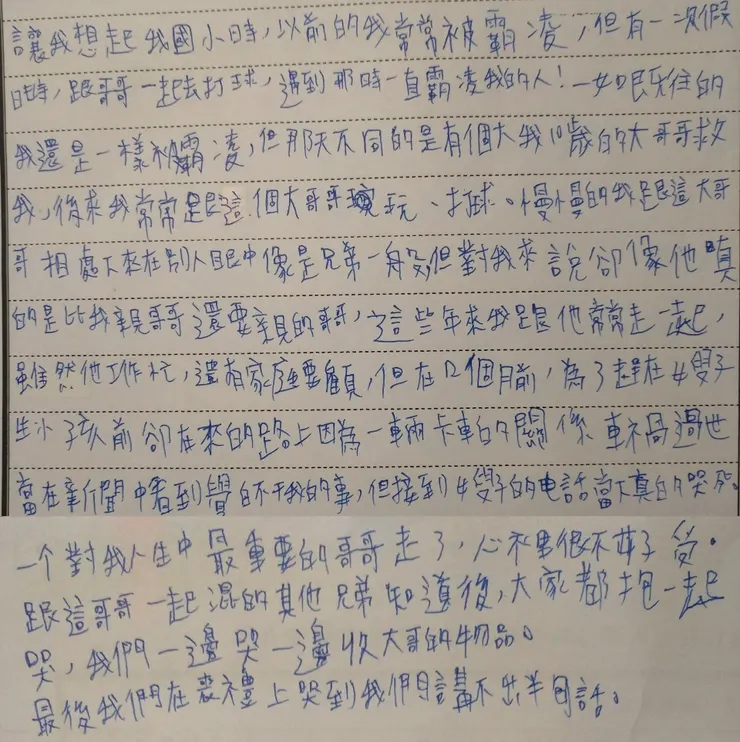 讓我想起我國小時，以前的我常常被霸凌，但有一次假
日時，跟哥哥一起去打球，遇到那時一直霸凌我的人！一如既往的
我還是一樣被霸凌，但那天不同的是有個大我10歲的大哥哥救
我，後來我常常是跟這個大哥哥玩、打球。慢慢的我跟這大哥
哥相處下來在別人眼中像是兄弟一般，但對我來說卻像他真
的是比我親哥哥還要親的哥哥，這些年來我跟他常常走一起，
雖然他工作忙，還有家庭要顧，但在12個月前，為了趕在嫂子
生小孩前卻在來的路上因為一輛卡車的關係車禍過世
當在新聞中看到覺得不干我的事，但接到嫂子的电話當下真的哭死。
一个對我人生中最重要的哥哥走了，心裡很不好受。
跟這哥哥一起混的其他兄弟知道後，大家都抱一起
哭，我們一邊哭一邊收大哥的物品。
最後我們在喪禮上哭到我們講不出半句話。